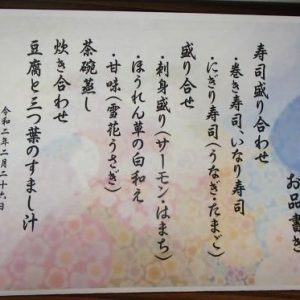 お品書き
寿司盛り合わせ
・巻き寿司、いなり寿司
・にぎり寿司(うなぎ・たまご)
盛り合せ
・刺身盛り(サーモン・はまち)
・ほうれん草の白和え
・甘味(雪花うさぎ)
茶碗蒸し
炊き合わせ
豆腐と三つ葉のすまし汁
令和二年二月二十六日